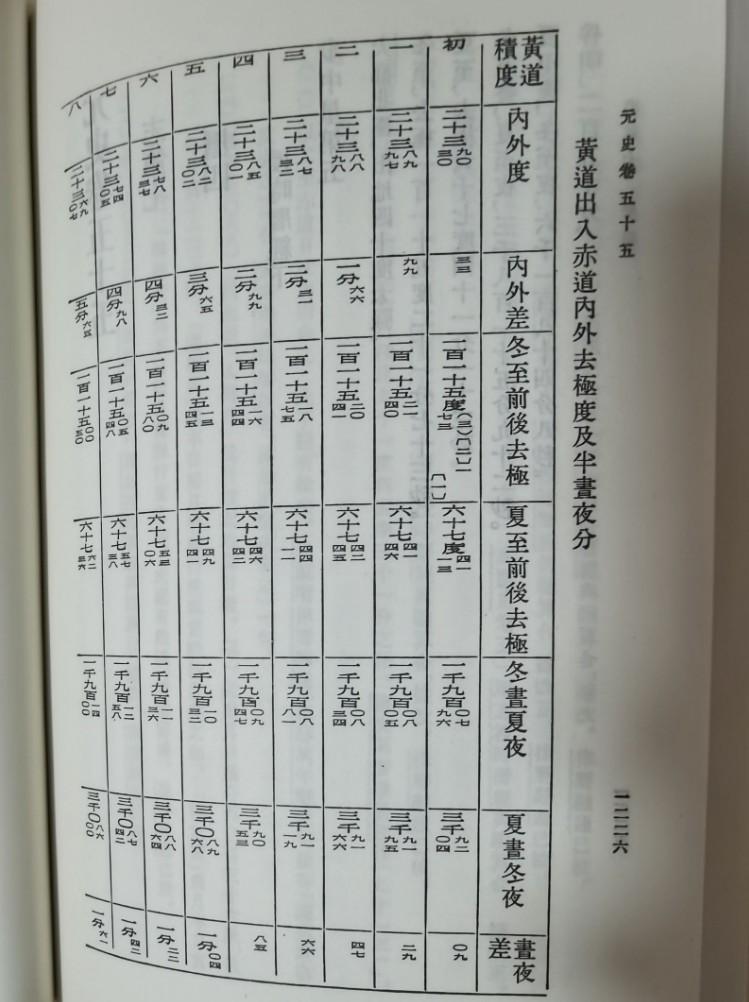 元史卷五十五
一二二六
黃道出入赤道內外去極度及半晝夜分
黃道積度 內外度 內外差 冬至前後去極 夏至前後去極 冬晝夏夜 夏晝冬夜 晝夜差
初 二十三九〇三〇 三三 一百一十五度(三)〔二〕一七三〔一〕 六十七度四一一三 一千九百〇七九六 三千九二〇四 〇九
一 二十三八九九七 九九 一百一十五二一四〇 六十七四一四六 一千九百〇八〇五 三千九一九五 二九
二 二十三八八九八 一分六六 一百一十五二〇四一 六十七四二四五 一千九百〇八三四 三千九一六六 四七
三 二十三八七三二 二分三一 一百一十五一八七五 六十七四四一一 一千九百〇八八一 三千九一一九 六六
四 二十三八五〇一 二分九九 一百一十五一六四四 六十七四六四二 一千九百〇九四七 三千九〇五三 八五
五 二十三八二〇二 三分六五 一百一十五一三四五 六十七四九四一 一千九百一〇三二 三千〇八九六八 一分〇四
六 二十三七八三七 四分三二 一百一十五〇九八〇 六十七五三〇六 一千九百一一三六 三千〇八八六四 一分二二
七 二十三七四〇五 四分九八 一百一十五〇五四八 六十七五七三八 一千九百一二五八 三千〇八七四二 一分四二
八 二十三六九〇七 五分六五 一百一十五〇〇五〇 六十七六二三六 一千九百一四〇〇 三千〇八六〇〇 一分六一